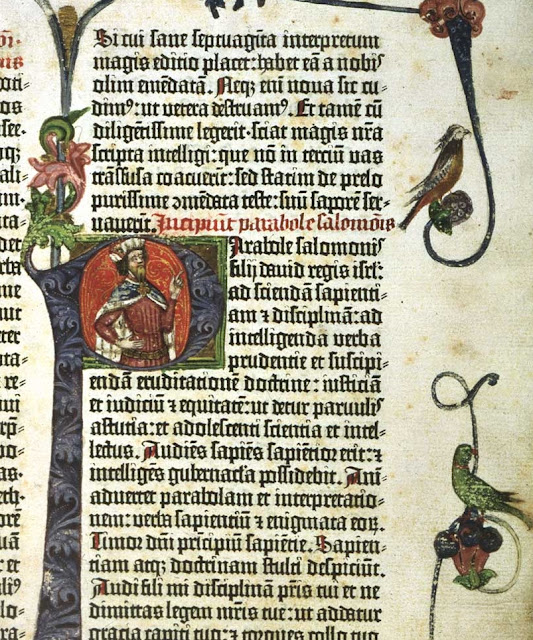 Si cui sane septuaginta interpretum
magis editio placet: habet eā a nobis
olim emēdatā. Neqꝫ eni noua sic cu-
dimꝰ: ut vetera destruamꝰ. Et tamē cū
diligētissime legerit· sciat magis nr̄a
scripta intelligi: que nō in terciū vas
trāsfusa coacuerit: sed statim de prelo
purissime ꝯmēdata teste: suū saporē ser-
uauerīt. Incipiūt parabole salomōis
Parabole salomonis
filij dauid regis isrl:
ad sciendā sapienti-
am ⁊ disciplinā: ad
intelligenda verba
prudentie et suscipi-
endā eruditationē doctrine: iusticiā
et iudiciū ⁊ equitatē: ut detur paruulis
astutia: et adolescenti scientia et intel-
lectus. Audiēs sapiēs sapientior erit: ⁊
intelligēs gubernacla possidebit. Ani-
aduertet parabolam et interpretatio-
nem: verba sapientiū ⁊ enigmata eoꝝ.
Timor dn̄i principiū sapiētie. Sapien-
tiam atqꝫ doctrinam stulti despiciūt.
Audi fili mi disciplinā pr̄is tui et ne
dimittas legem mr̄is tue: ut addatur
gracia capiti tuo: ⁊ torques collo tuo